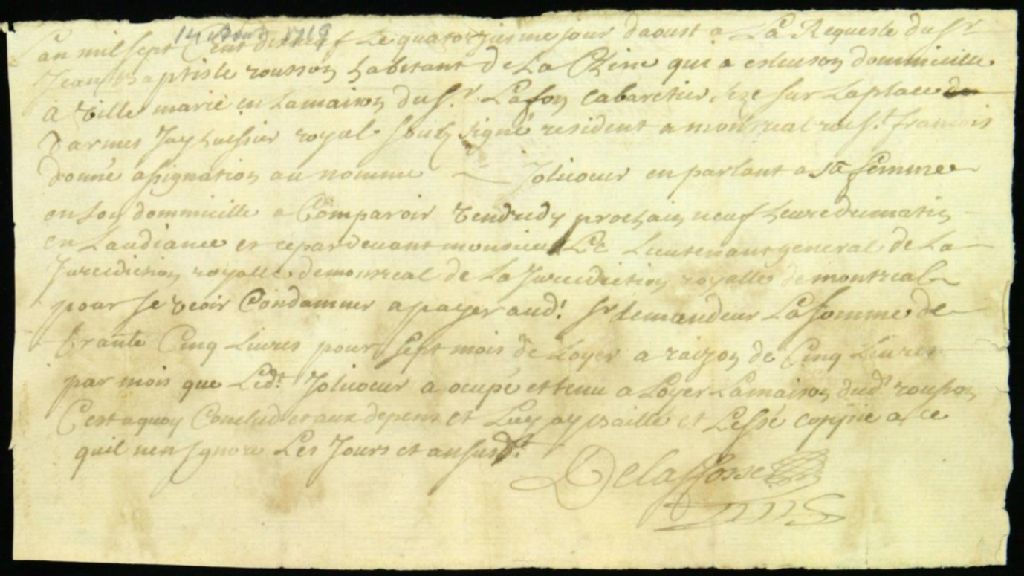 14 Aoust 1719
Lan mil sept Cent dix neuf Le quatorziesme jour daoust a La Requeste du Sr
Jean Baptiste rousson habitant de La Chine qui a esleu son dommicille
a Ville marie en La maison du Sr Lafon Cabaretier size sur La place
Darmes Jay huissier royal sous signé resident a montreal rue St francois
donné asignation au nomme Jolicoeur en parlant a sa femme
en son dommicille a Comparoir Vendredy prochain neuf heure du matin
en Laudiance et repardevant monsieur Le Lieutenant general de La
Jurediction royalle de montreal de La Jurediction royalle de montreal
pour se veoir Condamner a payer aud. Sr demandeur La somme de
trante Cinq Livres pour sept mois de Loyer a raizon de Cinq Livres
par mois que Ledt Jolicoeur a ocupé et tenu a Loyer La maison dudt rousson
Cest a quoy Conclud et aux depens et Luy ay baillé et Lessé coppye a ce
quil nen Ignore Les Jours et an susdt
Delafosse